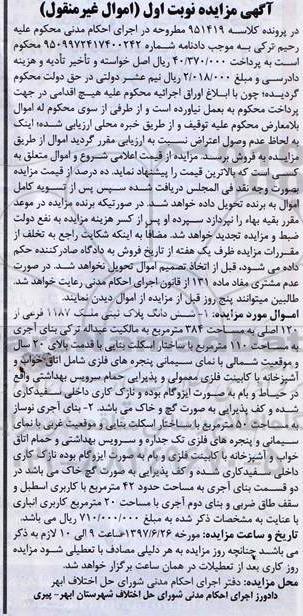 آگهی مزایده نوبت اول (اموال غیرمنقول)
در پرونده کلاسه ۹۵۱۴۱۹ مطروحه در اجرای احکام مدنی محکوم علیه
رحیم ترکی به موجب دادنامه شماره ۹۵۰۹۹۷۲۴۱۷۴۰۰۲۴۲ محکوم
است به پرداخت ۴۰/۳۷۰/۰۰۰ ریال اصل خواسته و تأخیر تأدیه و هزینه
دادرسی و مبلغ ۲/۰۱۸/۰۰۰ ریال نیم عشر دولتی در حق دولت محکوم
گردیده؛ چون با ابلاغ اوراق اجرائیه محکوم علیه هیچ اقدامی در جهت
پرداخت محکوم به بعمل نیاورده است و از طرفی از سوی محکوم له اموال
بلامعارض محکوم علیه توقیف و از طریق خبره محلی ارزیابی شده؛ اینک
از لحاظ عدم وصول اعتراض نسبت به ارزیابی مقرر گردید اموال از طریق
مزایده به فروش برسد. مزایده از قیمت اعلامی شروع و اموال متعلق به
کسی است که بالاترین قیمت را پیشنهاد نماید. ده درصد از قیمت مزایده
بصورت وجه نقد فی المجلس دریافت شده سپس پس از تسویه کامل
اموال به برنده تحویل داده خواهد شد. در صورتیکه برنده مزایده در موعد
مقرر بقیه بهاء را نپردازد سپرده او پس از کسر هزینه مزایده به نفع دولت
ضبط و مزایده تجدید خواهد شد. مضافا به اینکه شکایت راجع به تخلف از
مقررات مزایده ظرف یک هفته از تاریخ فروش به دادگاه صادرکننده حکم
داده می شود، قبل از اتخاذ تصمیم اموال تحویل نخواهد شد. در صورت
عدم مشتری مفاد ماده ۱۳۱ از قانون اجرای احکام مدنی رعایت خواهد شد.
طالبین میتوانند پنج روز قبل از مزایده از اموال دیدن نمایند.
اموال مورد مزایده: ۱- شش دانگ پلاک ثبتی ملک ۱۱۸۷ فرعی از
۱۲۰ اصلی به مساحت ۳۸۴ مترمربع به مالکیت عبداله ترکی بنای آجری
به مساحت ۱۱۰ مترمربع با ساختار اسکلت بنایی با قدمت بالای ۲۰ سال
و موقعیت شمالی با نمای سیمانی پنجره های فلزی شامل اتاق خواب و
آشپزخانه با کابینت فلزی معمولی و پذیرایی حمام سرویس بهداشتی واقع
در حیاط و بام به صورت ایزوگام بوده و نازک کاری داخلی سفیدکاری
شده و کف پذیرایی به صورت گچ و خاک می باشد. ۲- بنای آجری نوساز
به مساحت مترمربع با ساختار اسکلت بنایی و موقعیت غربی با نمای
سیمانی و پنجره های فلزی تک جداره و سرویس بهداشتی و حمام اتاق
خواب و آشپزخانه با کابینت فلزی و بام به صورت ایزوگام بوده نازک کاری
داخلی سفیدکاری شده و کف پذیرایی به صورت گچ خاک می باشد در
دو قسمت بنای آجری به مساحت حدود ۴۲ مترمربع با کاربری اسطبل و
سقف طاق ضربی و بنای دوم آجری با مساحت ۲۰ مترمربع کاربری انباری
با عنایت به مشخصات ذکر شده به مبلغ ۷۱۰/۰۰۰/۰۰۰ ریال می باشد.
تاریخ و ساعت مزایده: مورخه ۱۳۹۷/۶/۲۶ ساعت ۹ الی ۱۰ لازم به ذکر
می باشد چنانچه روز مزایده به هر دلیلی مصادف با تعطیلی شود مزایده
روز کاری بعد از تعطیلات در همان ساعت برگزار خواهد شد.
محل مزایده: دفتر اجرای احکام مدنی شورای حل اختلاف ابهر
دادورز اجرای احکام مدنی شورای حل اختلاف شهرستان ابهر- پیری